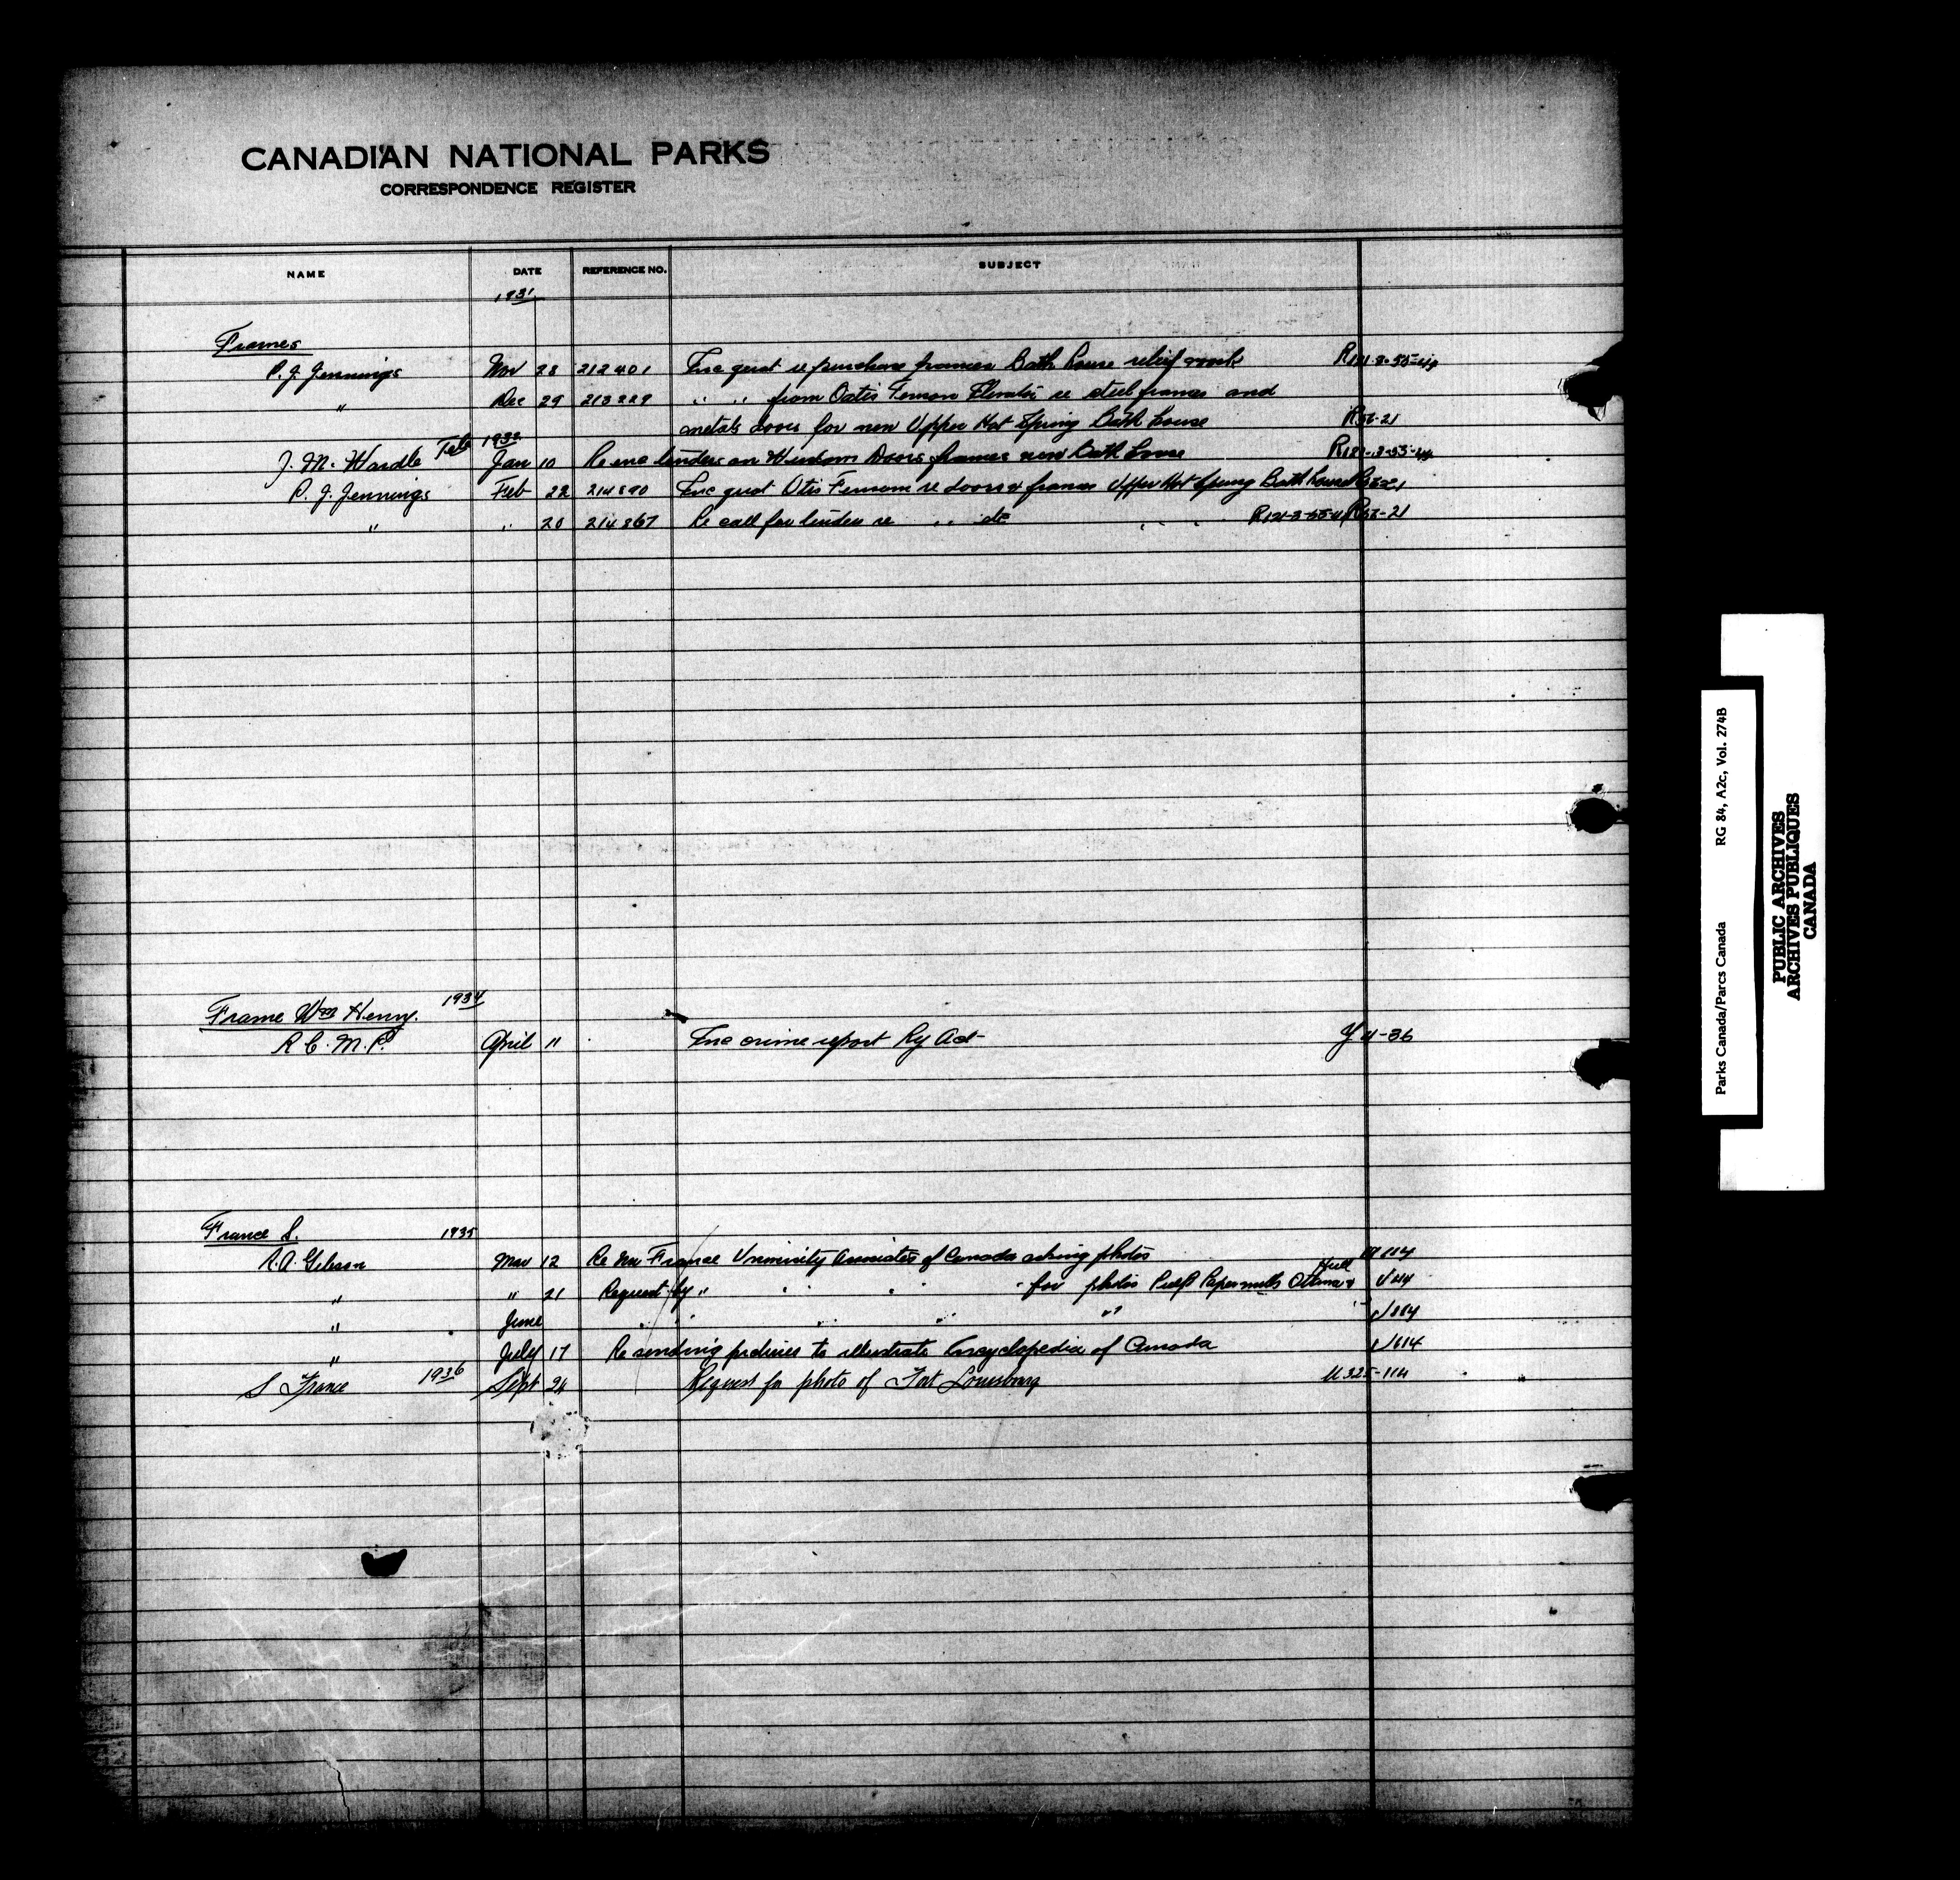 CANADIAN NATIONAL PARKS
CORRESPONDENCE REGISTER
NAME DATE REFERENCE NO. SUBJECT
1931
Frames
P. J. Jennings Nov 28 212401 Enc quot re purchase frames Bath house relief work
" Dec 29 213229 " " from Oatis Fenson Elevator re steel frames and
metals doors for new Upper Hot Spring Bath house R56-21
1932
J. M. Wardle Feb Jan 10 Re enc tenders on Windows Doors frames new Bath house
P. J. Jennings Feb 22 214890 Enc quot Otis Fensom re doors & frames Upper Hot Spring Bath house
" " 20 214867 Re call for tenders re " " etc " " " R56-21
Frame Wm Henry. 1934
R. C. M. P. April 11 Enc crime report Ry Act Y4-36
France S. 1935
R.A. Gibson Mar 12 Re Mr France University Associates of Canada asking photos
Hull
" " 21 Request by " " " " for photos Pulp Paper mills Ottawa &
" June " " " " "
" July 17 Re sending pictures to illustrate Encyclopedia of Canada
S France 1936 Sept 24 Request for photo of Fort Louisbourg U325-114
Parks Canada/Parcs Canada RG 84, A2c, Vol. 274B
PUBLIC ARCHIVES
ARCHIVES PUBLIQUES
CANADA